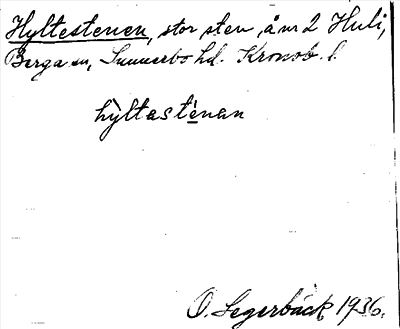 Hyltestenen, stor sten, å nr 2 Huli,
Berga sn, Sunnerbo hd. Kronob. l.
hỳltasténan
O. Segerbäck 1936.